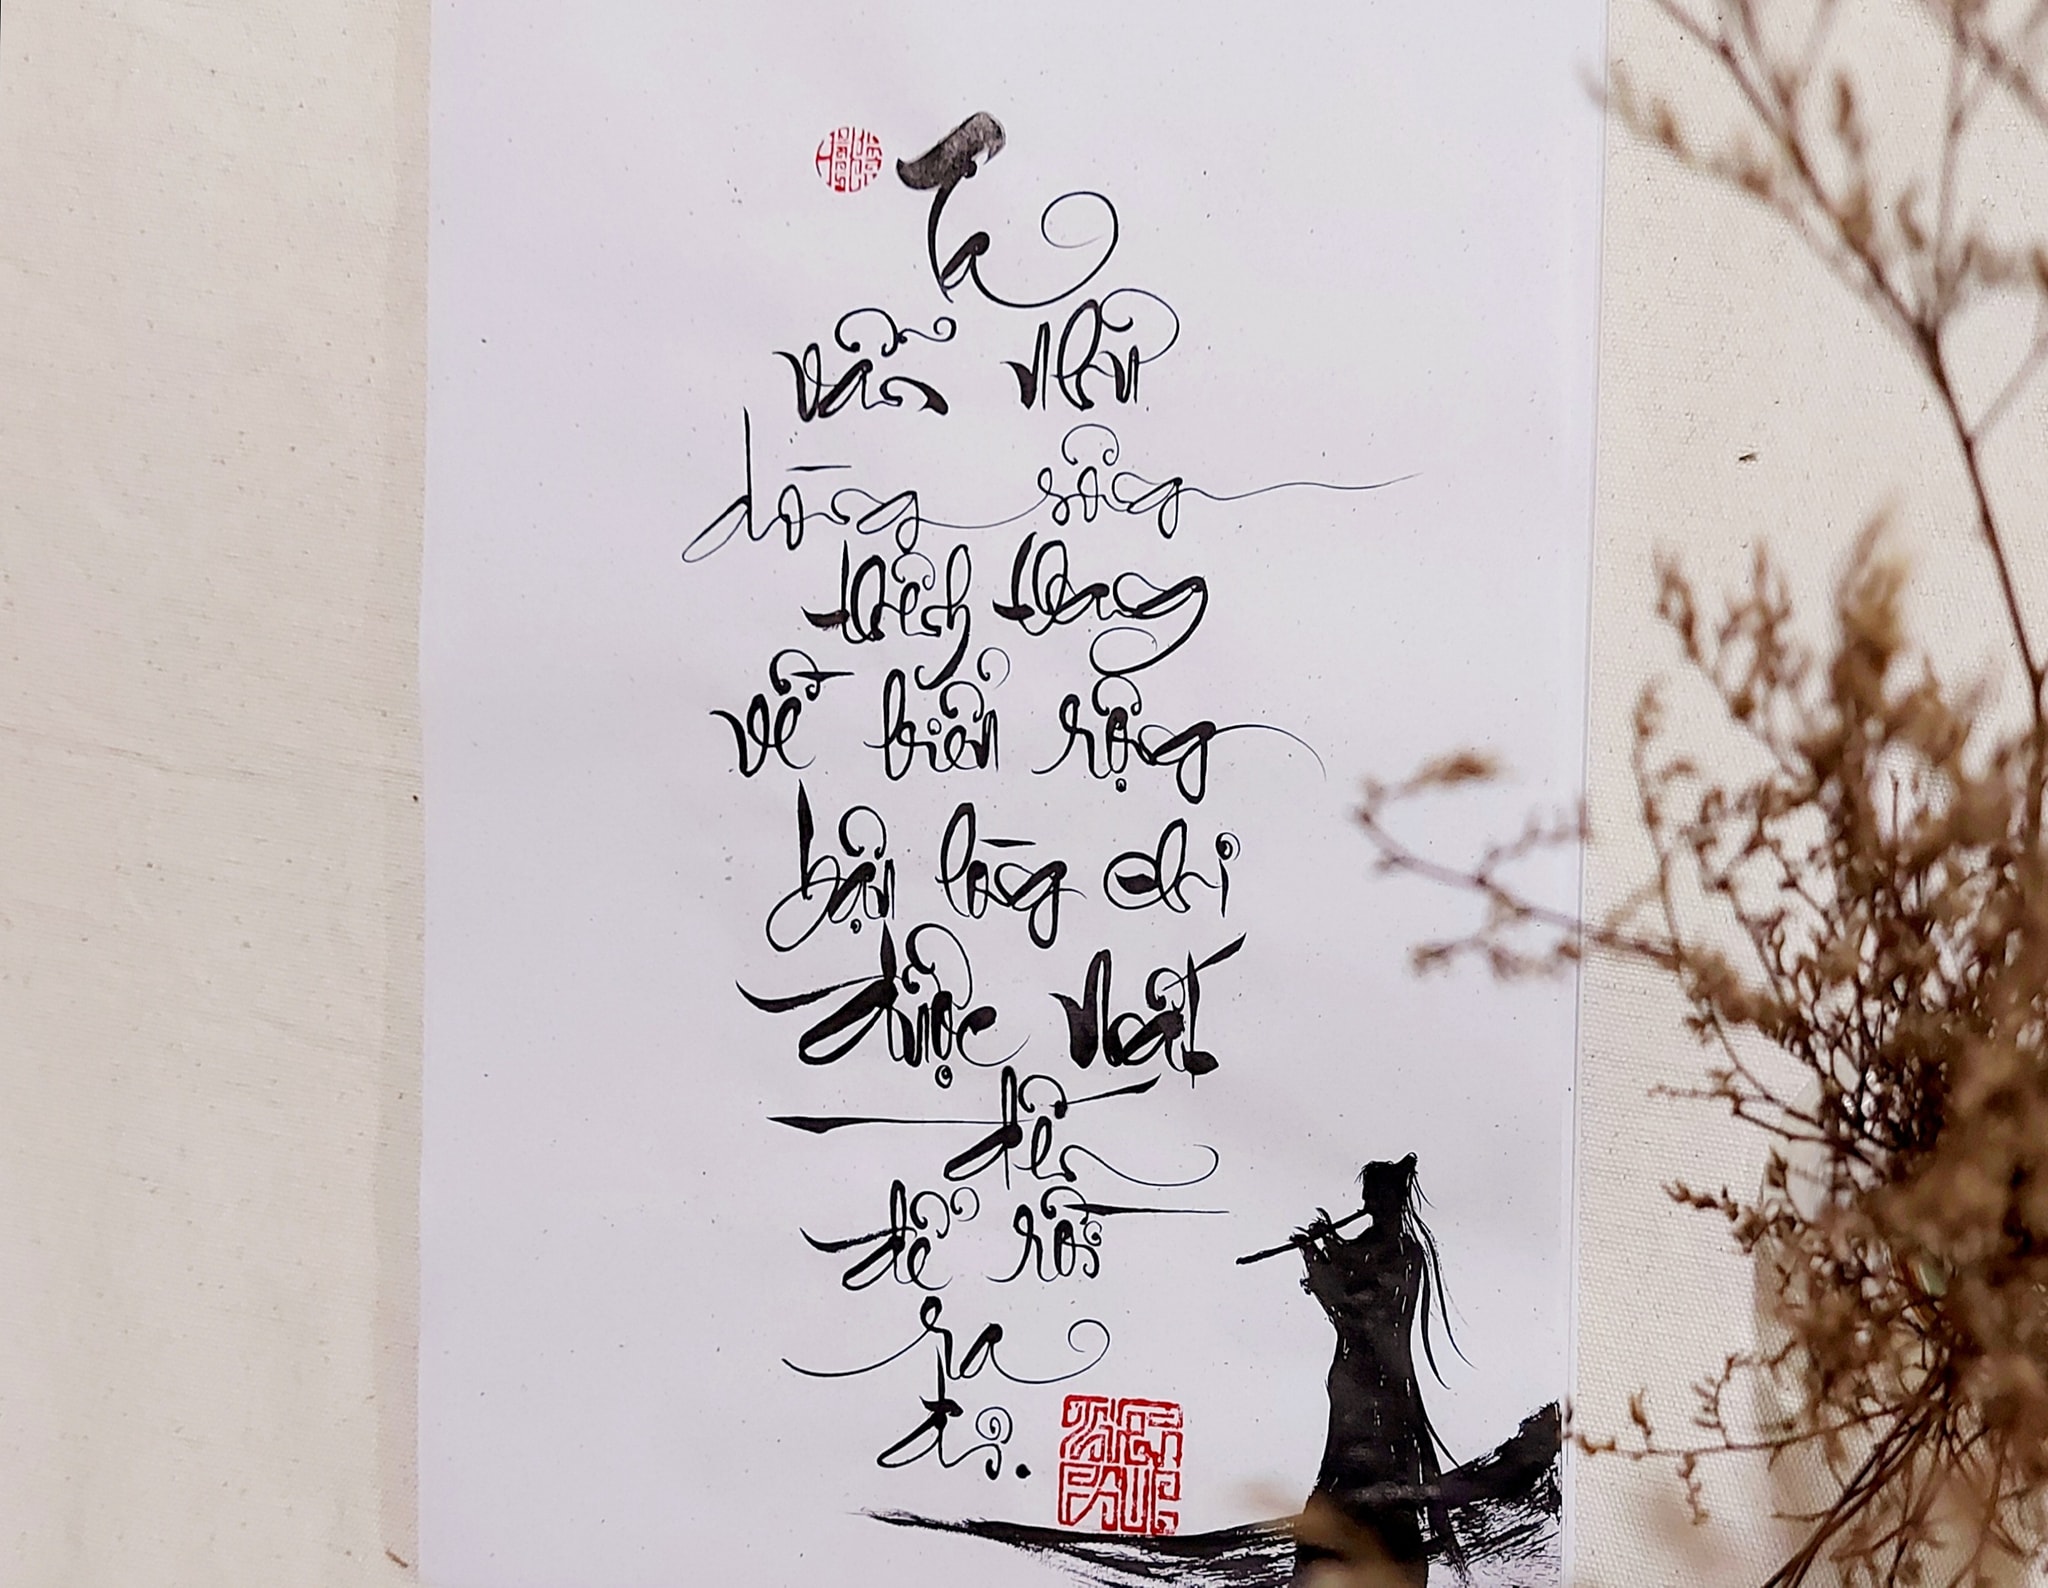 Ta
vẫn như
dòng sông
thênh thang
về biển rộng
bận lòng chi
được mất
đến
để rồi
ra
đi.